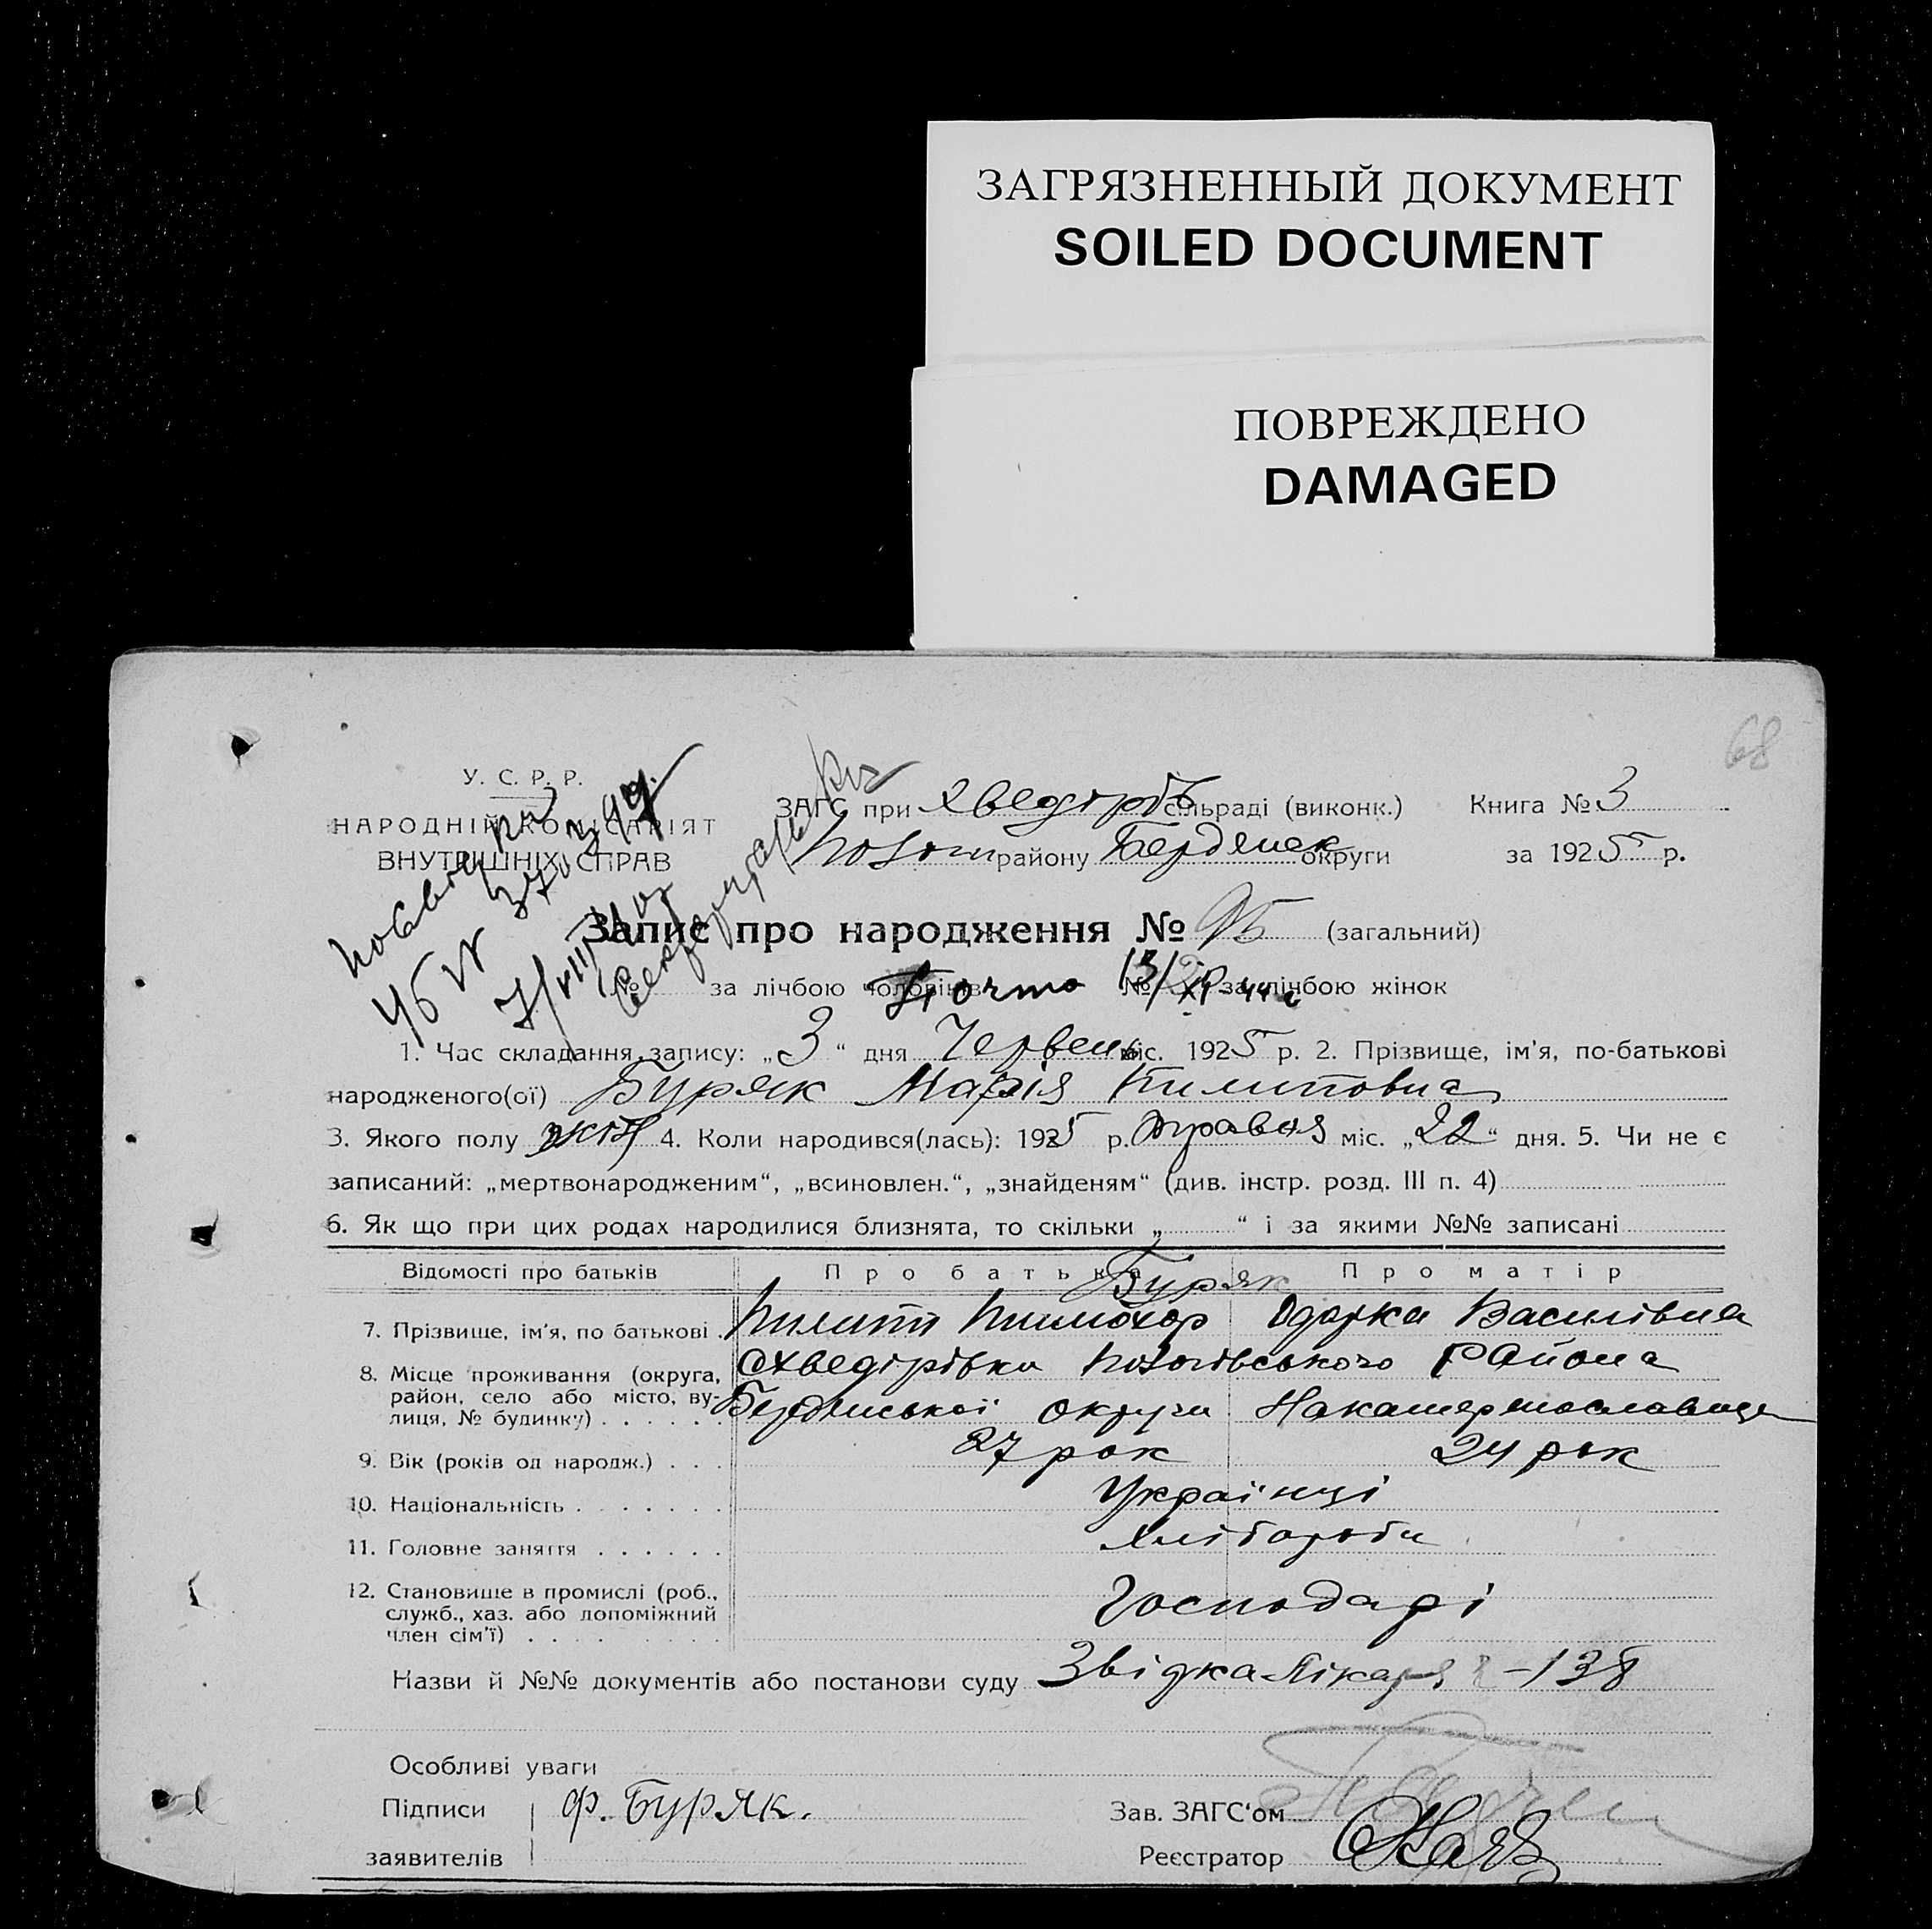 ЗАГРЯЗНЕННЫЙ ДОКУМЕНТ
SOILED DOCUMENT
ПОВРЕЖДЕНО
DAMAGED
68
У. С. Р. Р.
НАРОДНІЙ КОМІСАРІЯТ
ВНУТРІШНІХ СПРАВ
ЗАГС при Хведірів сільраді (виконк.) Книга № 3
району Бердянск округи за 1925 р.
Запис про народження № 95 (загальний)
№ за лічбою чоловіків № за лічбою жінок
1. Час складання запису: „3“ дня Червень міс. 1925 р. 2. Прізвище, ім'я, по-батькові
народженого(ої) Буряк Марія Пилиповна
3. Якого полу жін 4. Коли народився(лась): 1925 р. травня міс. „22“ дня. 5. Чи не є
записаний: „мертвонародженим“, „всиновлен.“, „знайденям“ (див. інстр. розд. III п. 4)
6. Як що при цих родах народилися близнята, то скільки „ “ і за якими №№ записані
Відомості про батьків Про батька Про матір
Буряк
7. Прізвище, ім'я, по батькові Пилип Одарка Василівна
8. Місце проживання (округа, район, село або місто, вулиця, № будинку)
Охведірівка Района
Бердянської округи
9. Вік (років од народж.) 27 рок 24 рок
10. Національність Українці
11. Головне заняття Хлібороби
12. Становище в промислі (роб., служб., хаз. або допоміжний член сім'ї) Господарі
Назви й №№ документів або постанови суду Звідка Лікаря -138
Особливі уваги
Підписи Ф. Буряк. Зав. ЗАГС'ом
заявителів Реєстратор